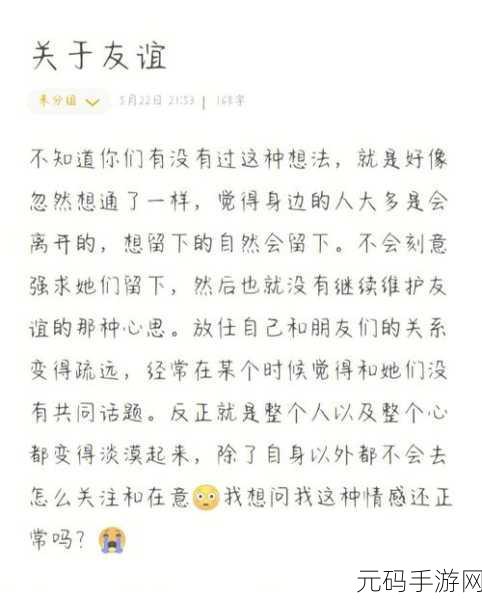 关于友谊
未分组 5月22日 21:53 | 168字
不知道你们有没有过这种想法，就是好像
忽然想通了一样，觉得身边的人大多是会
离开的，想留下的自然会留下。不会刻意
强求她们留下，然后也就没有继续维护友
谊的那种心思。放任自己和朋友们的关系
变得疏远，经常在某个时候觉得和她们没
有共同话题。反正就是整个人以及整个心
都变得淡漠起来，除了自身以外都不会去
怎么关注和在意😳我想问我这种情感还正
常吗？😭
元码手游网